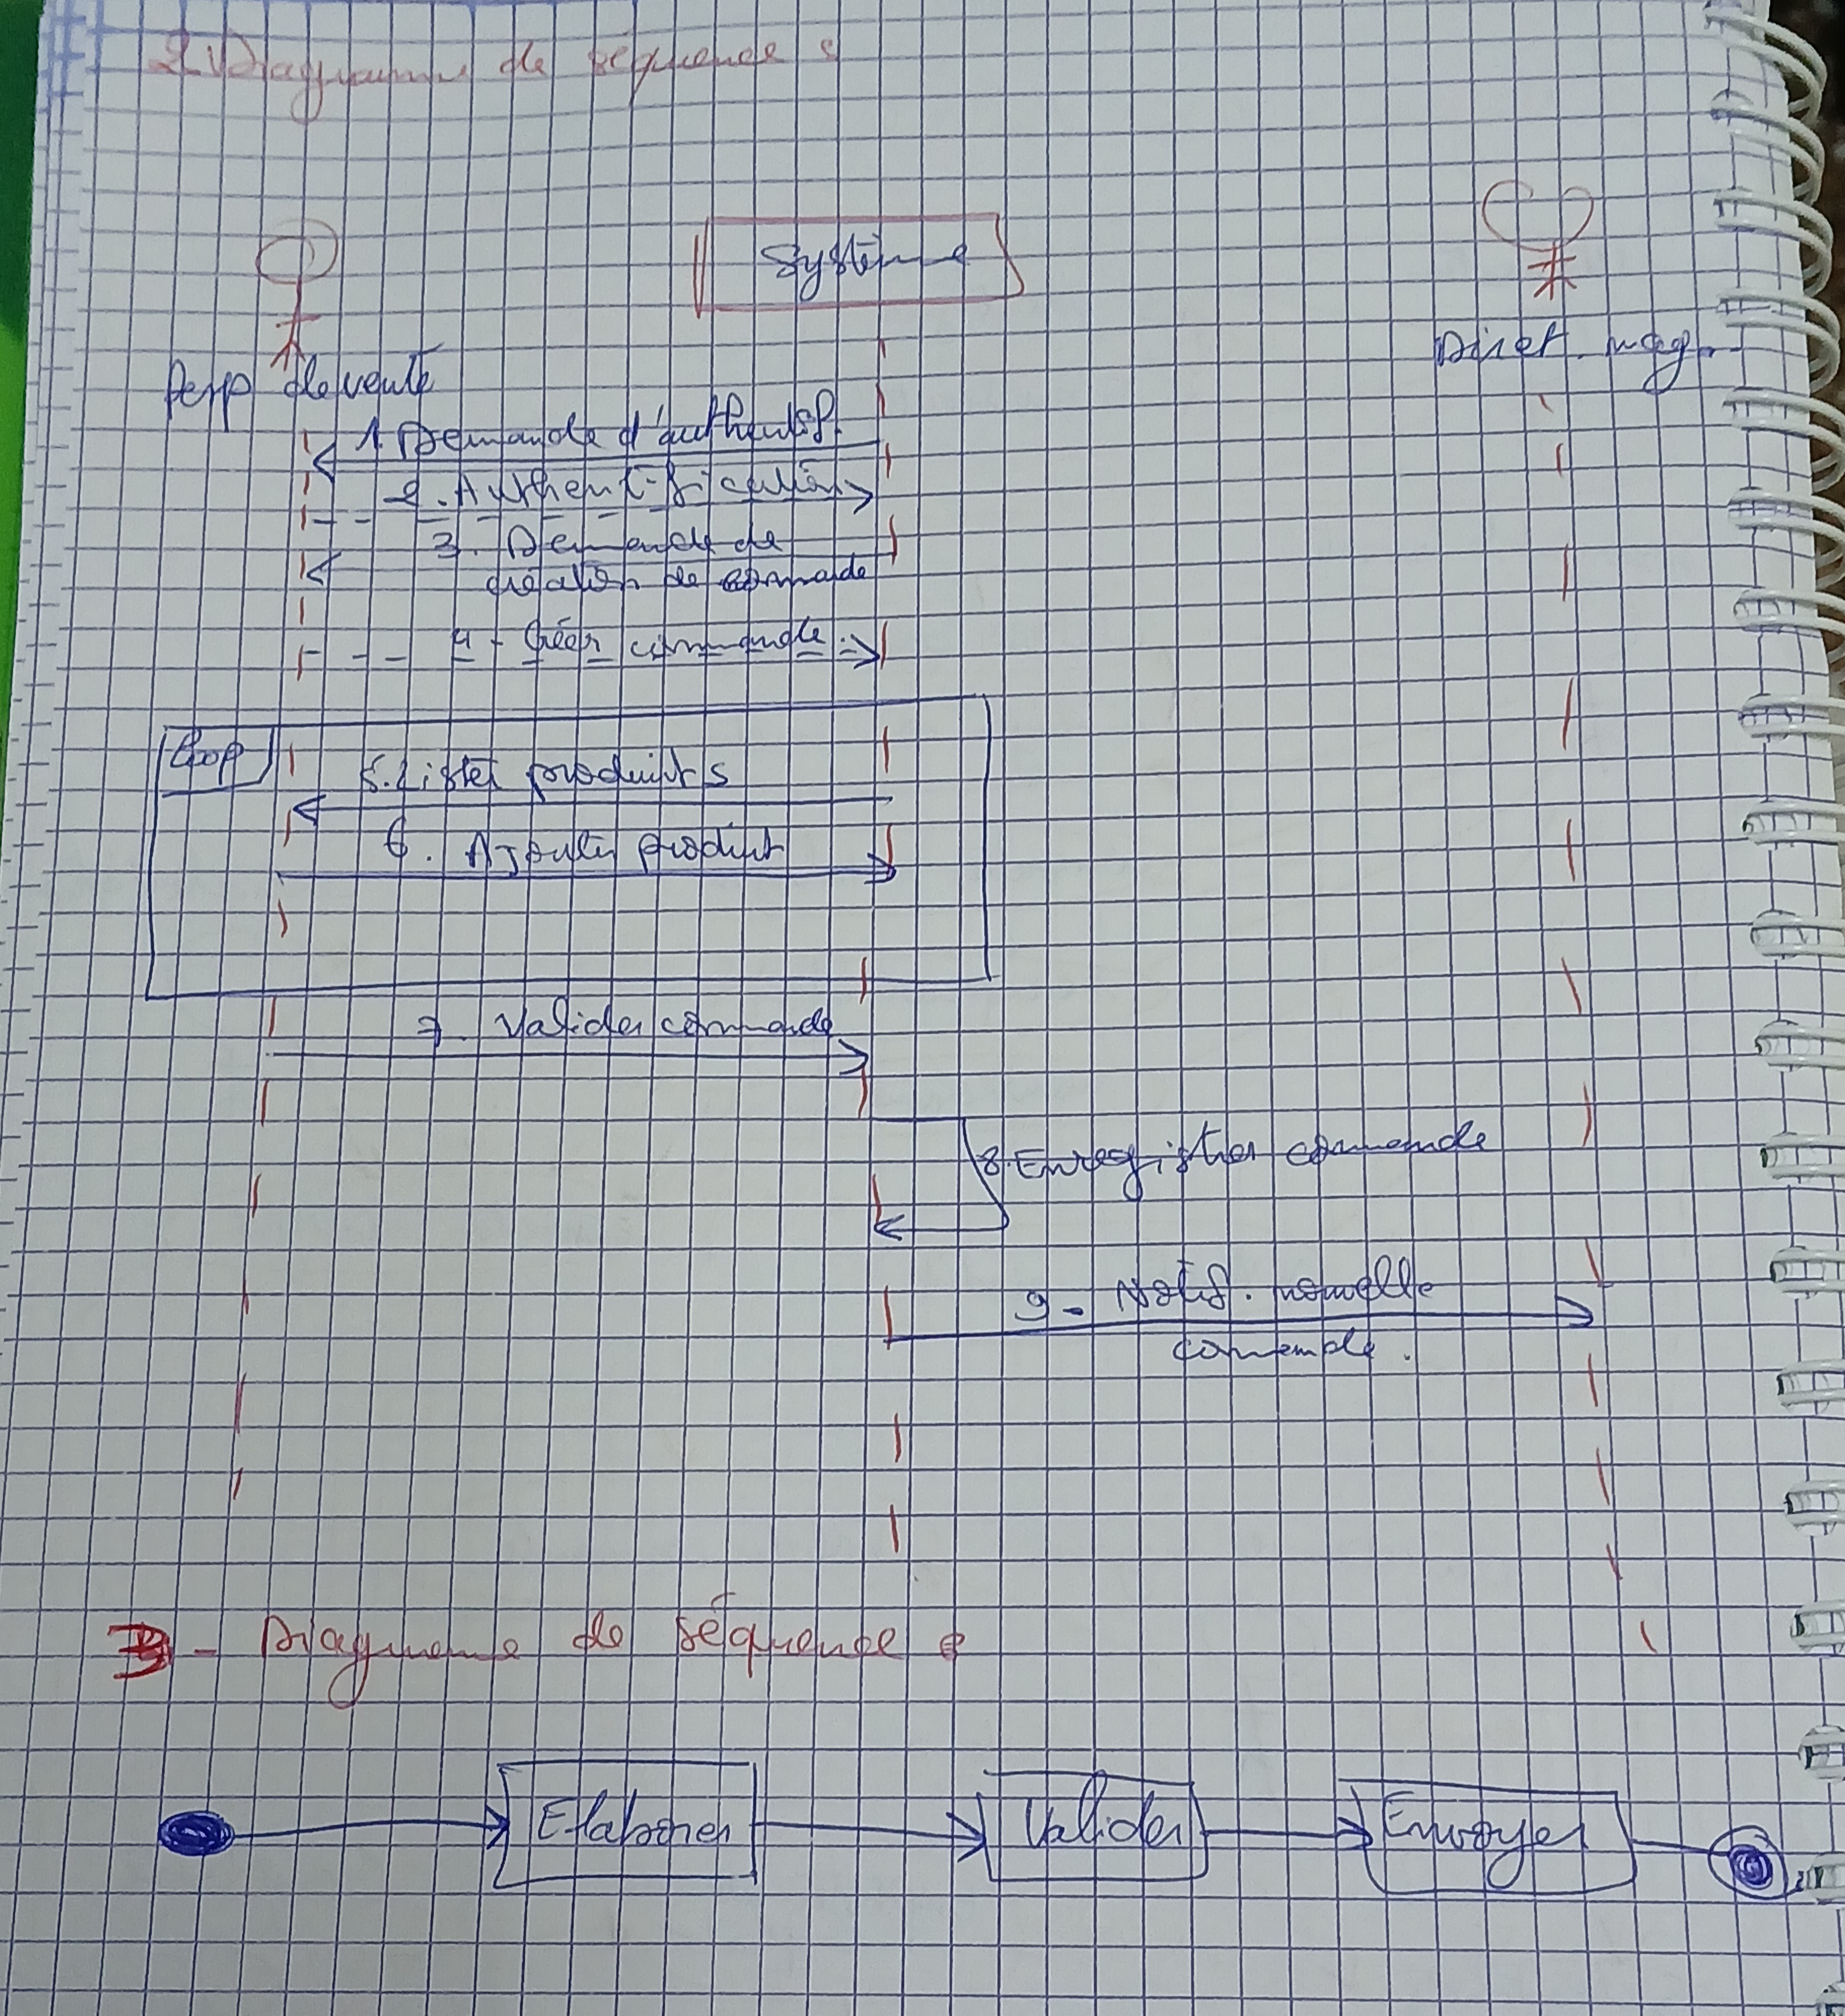 2. Diagramme de séquence :
Système
Direct. mag.
Resp de vente
1. Demande d'authentif.
2. Authentification
3. Demande de
création de commande
4 - Créer commande.
loop
5. Lister produits
6. Ajouter produit
7. Valider commande
8. Enregistrer commande
9 - Notif. nouvelle
commande.
3 - Diagramme de séquence :
Elaborer
Valider
Envoyer